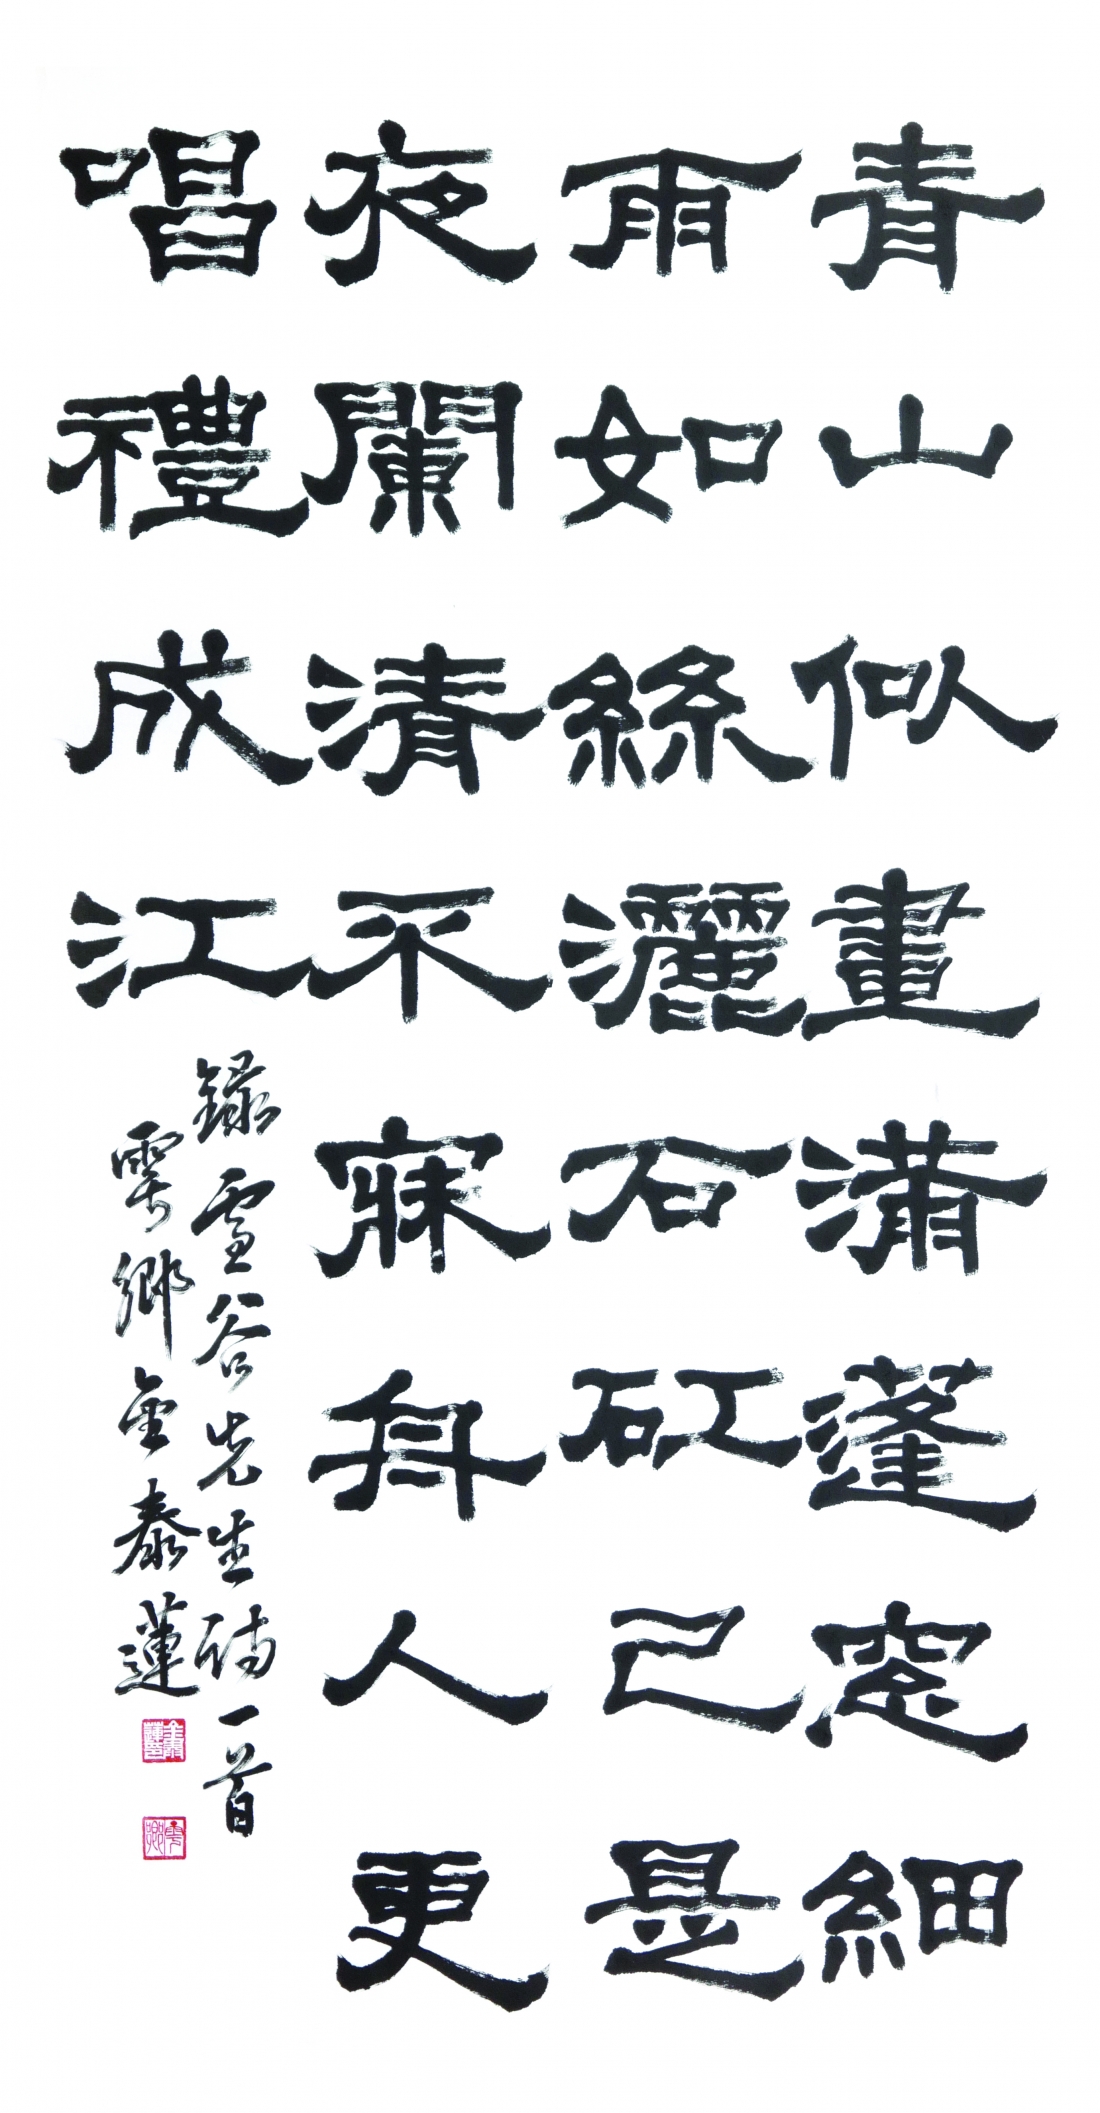 青山似畫滿蓬窓細
雨如絲灑石矼已是
夜闌清不寐舟人更
唱禮成江
錄雪谷先生詩一首
雩鄉金泰蓮